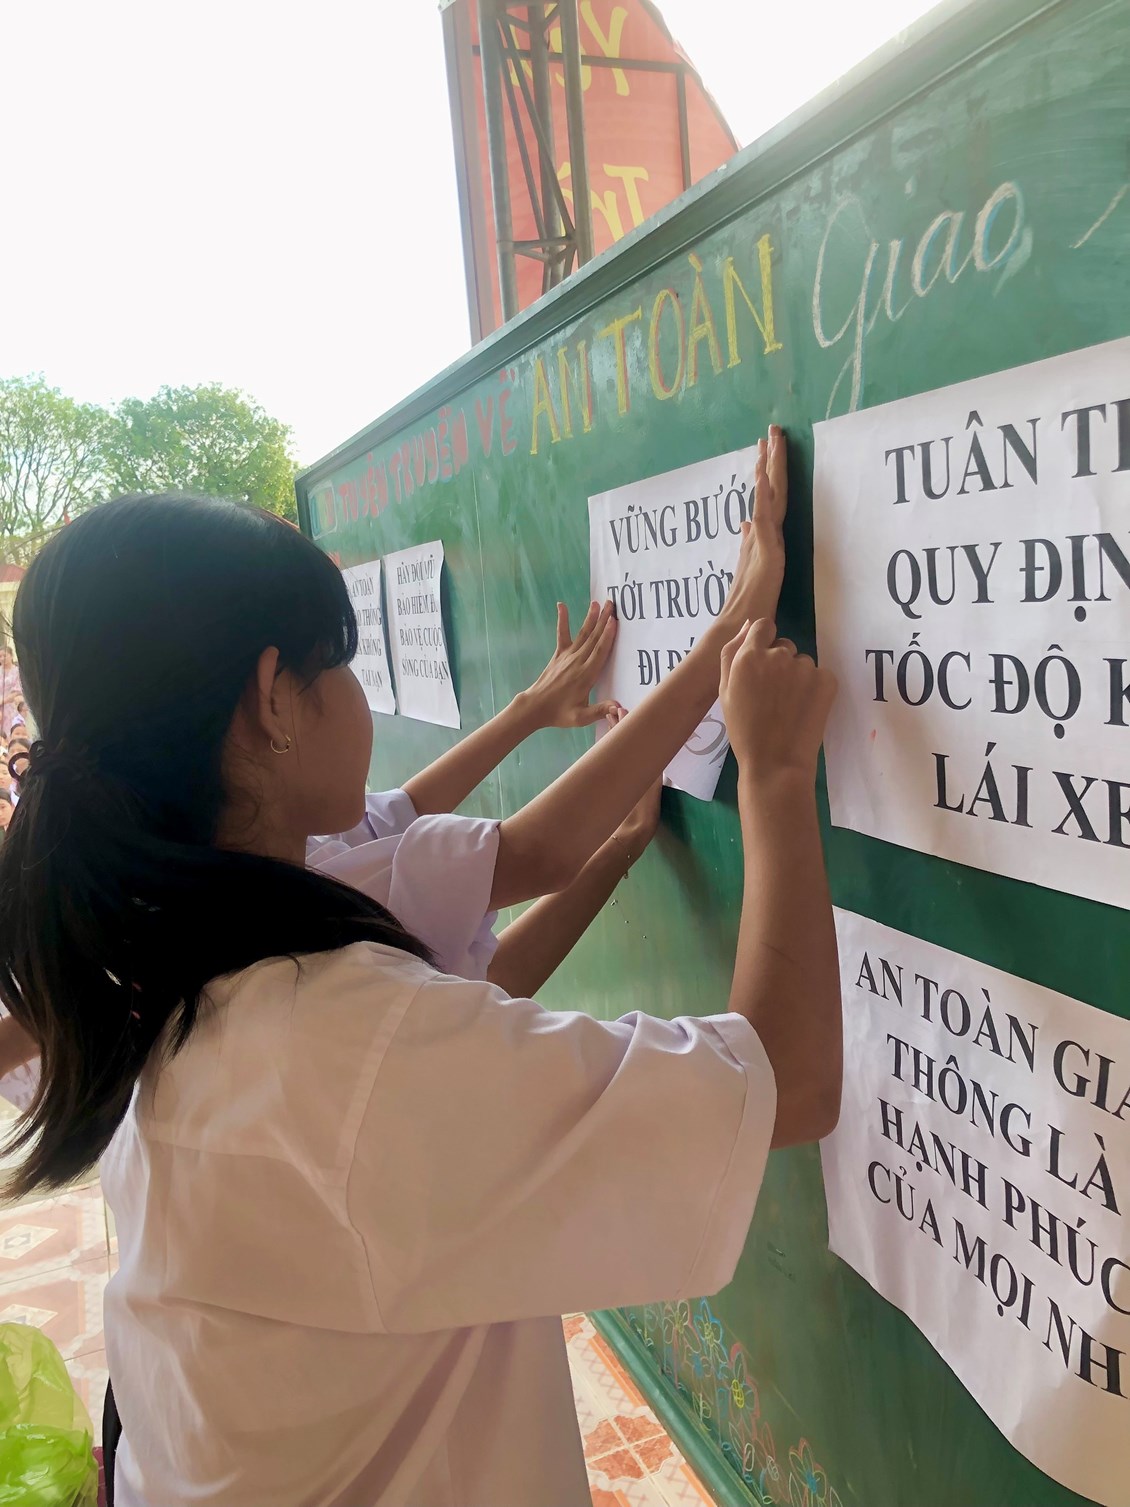 TUYÊN TRUYỀN VỀ AN TOÀN Giao
AN TOÀN
THÔNG
KHÔNG
TAI NẠN
HÃY ĐỘI MŨ
BẢO HIỂM
BẢO VỆ CUỘC
SỐNG CỦA BẠN
VỮNG BƯỚC
TỚI TRƯỜN
ĐI
TUÂN
QUY ĐỊN
TỐC ĐỘ K
LÁI XE
AN TOÀN GIA
THÔNG LÀ
HẠNH PHÚC
CỦA MỌI NH